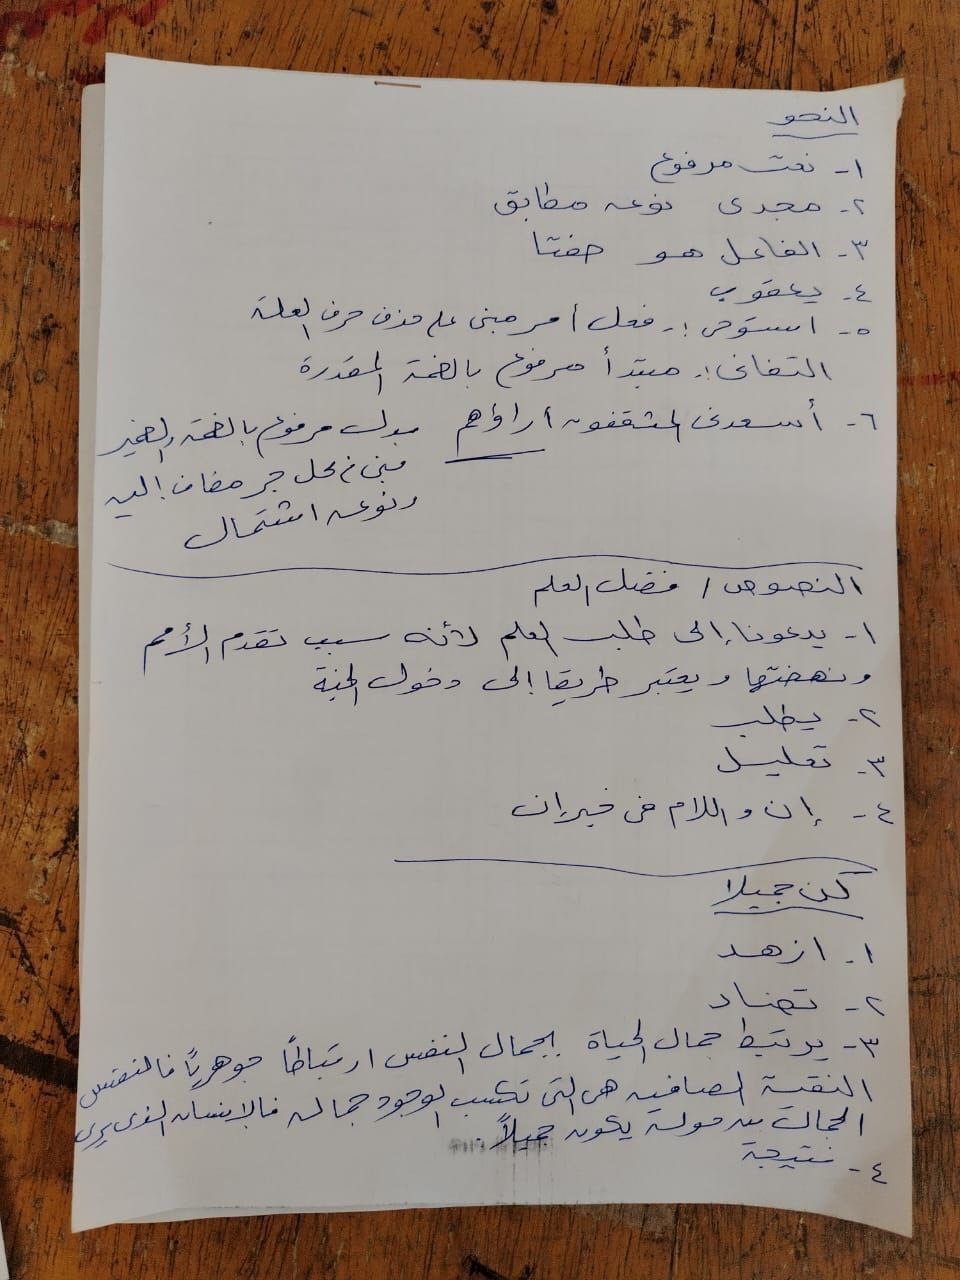 النحو
١- نعت مرفوع
٢- مجدى نوعه مطابق
٣- الفاعل هو صفتا
٤- يعقوب
٥- استوص :- فعل أمر مبنى على حذف حرف العلة
التفانى :- مبتدأ مرفوع بالضمة المقدرة
٦- أسعدنى المثقفون أراؤهم بدل مرفوع بالضمة والضمير
مبنى فى محل جر مضاف إليه
ونوعه اشتمال
النصوص / فضل العلم
١- يدعونا إلى طلب العلم لأنه سبب تقدم الأمم
ونهضتها ويعتبر طريقا إلى دخول الجنة
٢- يطلب
٣- تعليل
٤- إن واللام فى
كن جميلا
١- ازهد
٢- تضاد
٣- يرتبط جمال الحياة بجمال النفس ارتباطاً جوهرياً فالنفس
النقية الصافية هى التى تكسب الوجود جماله فالإنسان الذى يرى
الجمال من حوله يكون جميلاً.
٤- نتيجة